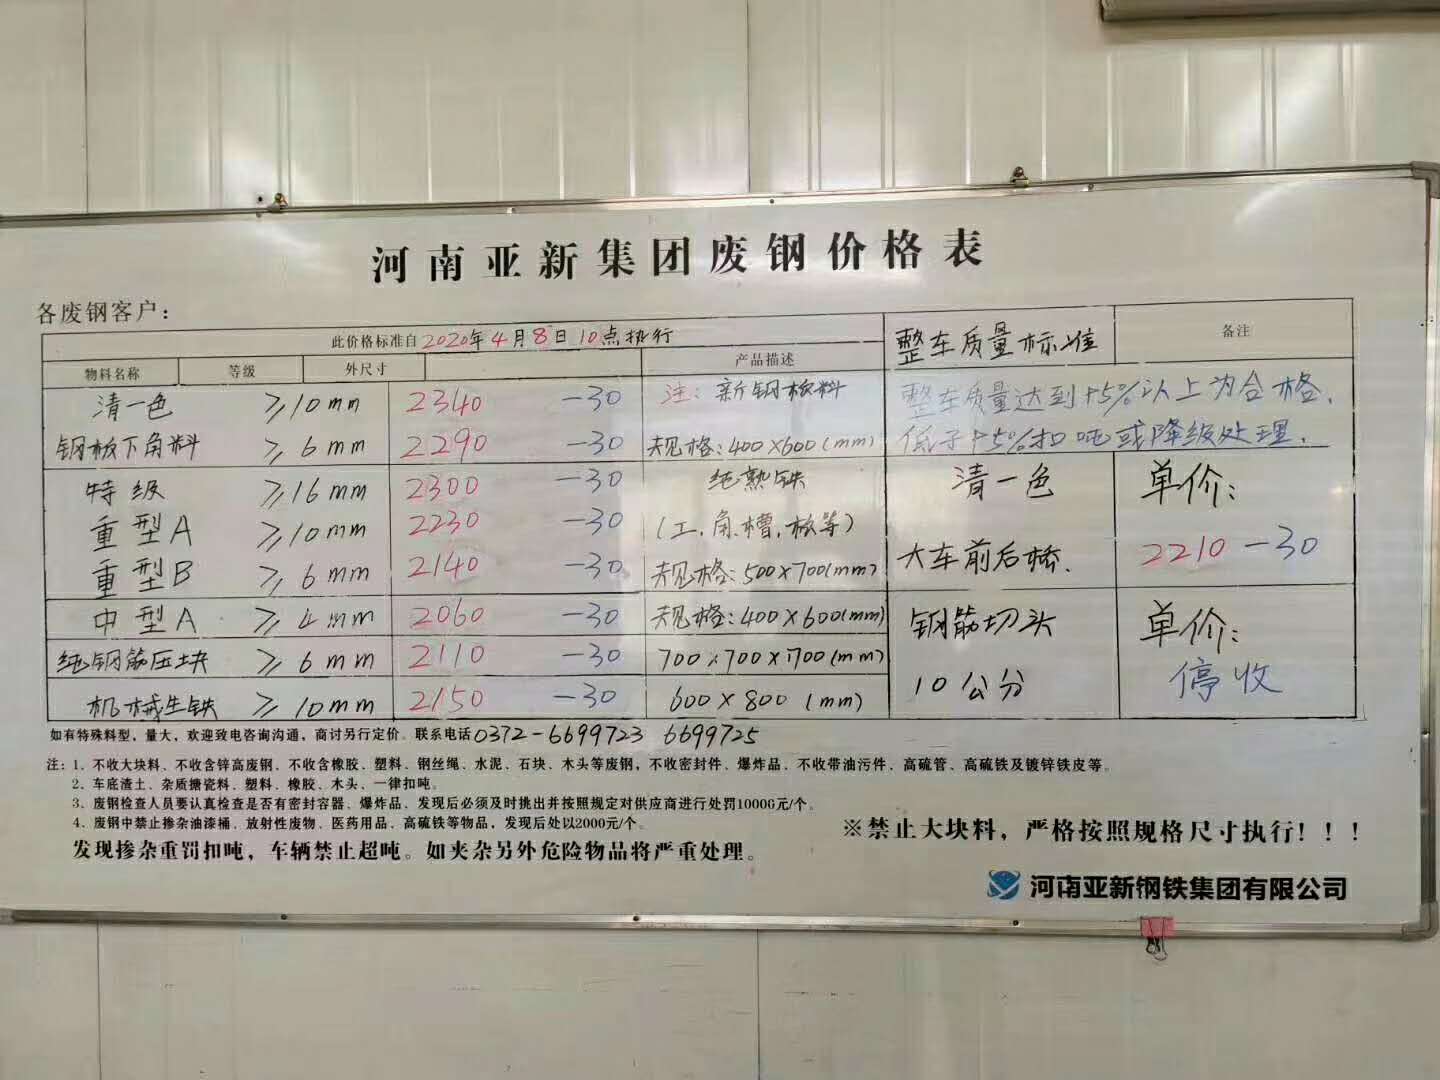 河南亚新集团废钢价格表
各废钢客户：
此价格标准自2020年4月8日10点执行
整车质量标准
备注
物料名称 等级 外尺寸 产品描述
清一色 ≥10mm 2340 -30 注：新钢板料
钢板下角料 ≥6mm 2290 -30 规格：400×600(mm)
整车质量达到+5%以上为合格，
低于+5%扣吨或降级处理．
特级 ≥16mm 2300 -30 纯熟铁
重型A ≥10mm 2230 -30 (工、角、槽、板等)
重型B ≥6mm 2140 -30 规格：500×700(mm)
清一色 单价：
大车前后桥． 2210 -30
中型A ≥4mm 2060 -30 规格：400×600(mm)
纯钢筋压块 ≥6mm 2110 -30 700×700×700(mm)
机械生铁 ≥10mm 2150 -30 600×800 (mm)
钢筋切头 单价：
10公分 停收
如有特殊料型，量大，欢迎致电咨询沟通，商讨另行定价。联系电话0372-6699723 6699725
注：1、不收大块料、不收含锌高废钢、不收含橡胶、塑料、钢丝绳、水泥、石块、木头等废钢，不收密封件、爆炸品、不收带油污件、高硫管、高硫铁及镀锌铁皮等。
2、车底渣土、杂质搪瓷料、塑料、橡胶、木头、一律扣吨。
3、废钢检查人员要认真检查是否有密封容器、爆炸品、发现后必须及时挑出并按照规定对供应商进行处罚10000元/个。
4、废钢中禁止掺杂油漆桶、放射性废物、医药用品、高硫铁等物品，发现后处以2000元/个。
发现掺杂重罚扣吨，车辆禁止超吨。如夹杂另外危险物品将严重处理。
※禁止大块料，严格按照规格尺寸执行！！！
河南亚新钢铁集团有限公司